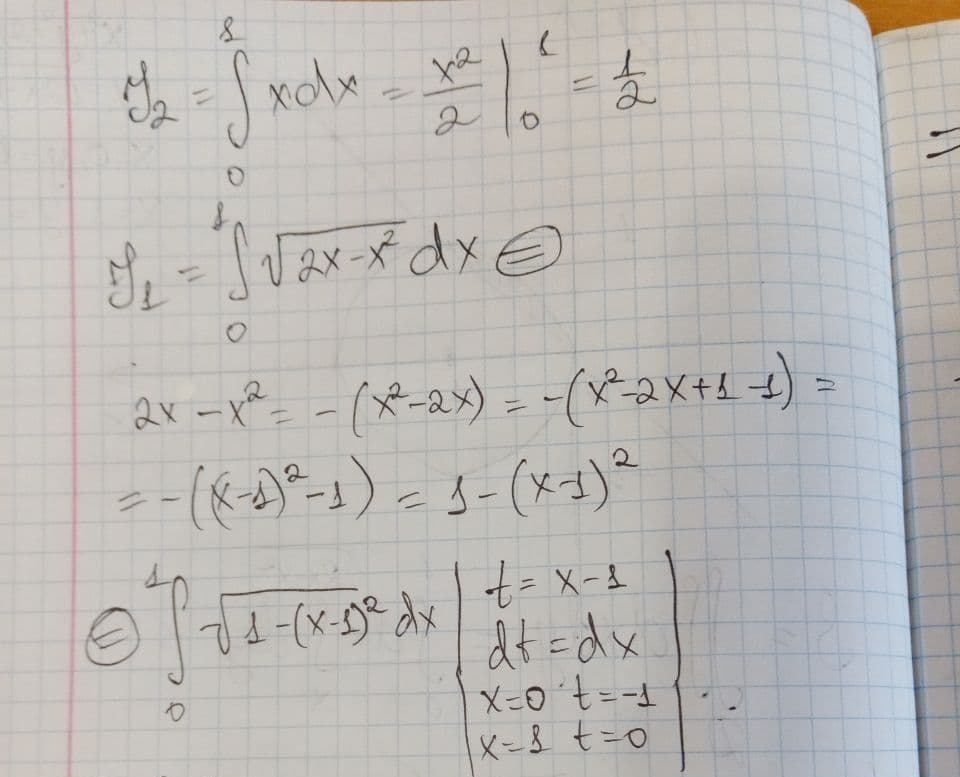 J₂ = ∫₀¹ x dx = x²/2 |₀¹ = 1/2
J₁ = ∫₀¹ √(2x-x²) dx ⊜
2x - x² = -(x²-2x) = -(x²-2x+1-1) =
= -((x-1)²-1) = 1-(x-1)²
⊜ ∫₀¹ √(1-(x-1)²) dx | t = x-1
dt = dx
x=0 t=-1
x=1 t=0 |
=